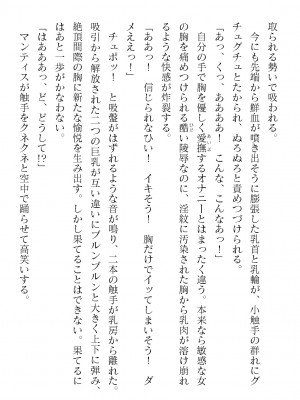 取られる勢いで吸われる。
　今にも先端から鮮血が噴き出そうに膨張した乳首と乳輪が、小触手の群れにグ
チュグチュとたかられ、ぬろぬろと責めつづけられる。
「あっ、くっ、ああああ！　こんな、こんなあっ！」
　自分の手で胸を優しく愛撫するオナニーとはまったく違う。本来なら敏感な女
の胸を痛めつける酷い陵辱なのに、淫紋に汚染された胸から乳肉が溶け崩れ
るような快感が炸裂する。
「ああっ！　信じられなひい！　イキそう！　胸だけでイッてしまいそう！　ダ
メええっ！」
　チュポッ！　と吸盤がはずれるような音が鳴り、二本の触手が乳房から離れた。
吸引から解放された二つの巨乳が互い違いにブルンブルンと大きく上下に弾み、
絶頂間際の胸に新たな愉悦を生み出す。しかし果てることはできない。果てるに
はあと一歩がかなわない。
「はああああっ、ど、どうして!?」
　マンティスが触手をクネクネと空中で踊らせて高笑いする。